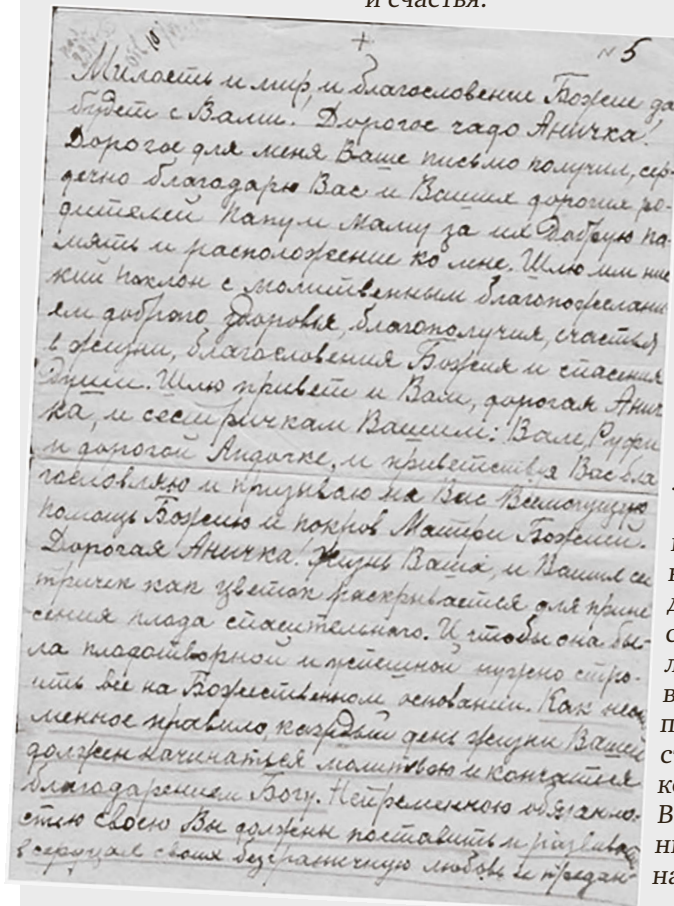 и счастья.
+
N 5
Милость и мир, и благословение Божие да
будет с Вами! Дорогое чадо Аничка!
Дорогое для меня Ваше письмо получил, сер-
дечно благодарю Вас и Ваших дорогих ро-
дителей папу и маму за их добрую па-
мять и расположение ко мне. Шлю им низ
кий поклон с молитвенным благопожелани
ем доброго здоровья, благополучия, счастья
в жизни, благословения Божия и спасения
Души. Шлю привет и Вам, дорогая Анич
ка, и сестричкам Вашим: Вале, Руфи
и дорогой Лидочке, и приветствуя Вас бла
гословляю и призываю на Вас Всемогущую
помощь Божию и покров Матери Божией.
Дорогая Аничка! Жизнь Ваша, и Ваших се
тричек как цветок раскрывается для прине
сения плода спасительного. И чтобы она бы-
ла плодотворной и успешной нужно стро-
ить все на Божественном основании. Как неод
менное правило каждый день жизни Вашей
должен начинаться молитвою и кончаться
благодарением Богу. Непременною обязанно-
стью своею Вы должны поставить и развива
в сердцах своих безграничную любовь и предан-